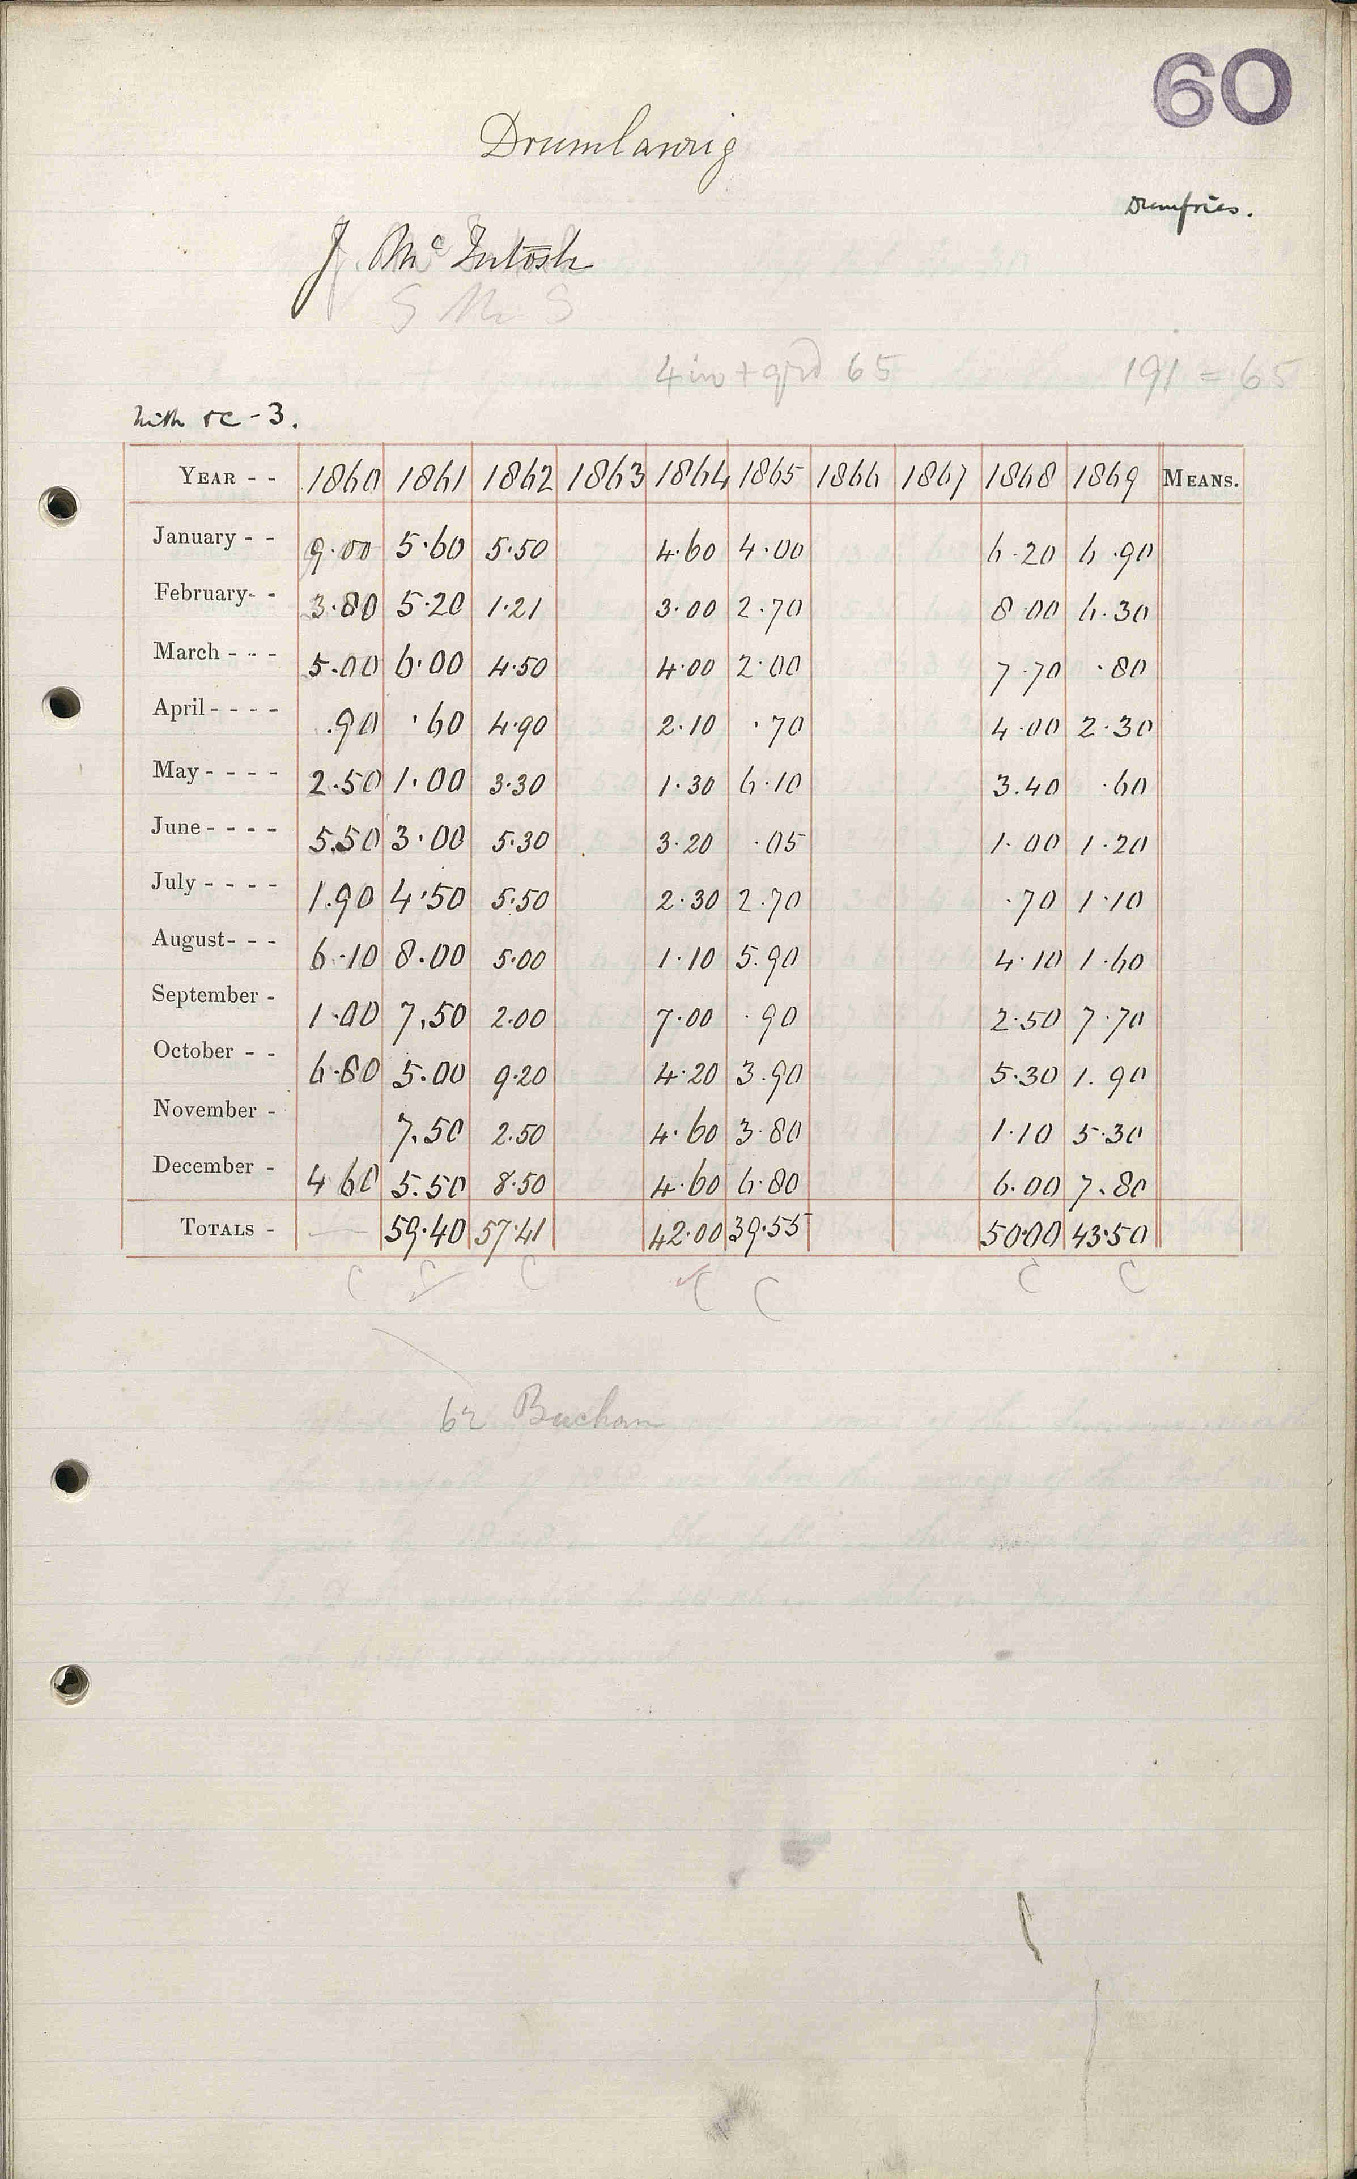 60
Drumlanrig
Dumfries.
J. McIntosh
S M S
4 in + grd 65 191 = 65
Nith &c - 3.
YEAR - - 1860 1861 1862 1863 1864 1865 1866 1867 1868 1869 MEANS.
January - - 9.00 5.60 5.50 4.60 4.00 6.20 6.90
February- - 3.80 5.20 1.21 3.00 2.70 8.00 6.30
March - - - 5.00 6.00 4.50 4.00 2.00 7.70 .80
April - - - - .90 .60 4.90 2.10 .70 4.00 2.30
May - - - - 2.50 1.00 3.30 1.30 6.10 3.40 .60
June - - - - 5.50 3.00 5.30 3.20 .05 1.00 1.20
July - - - - 1.90 4.50 5.50 2.30 2.70 .70 1.10
August- - - 6.10 8.00 5.00 1.10 5.90 4.10 1.60
September - 1.00 7.50 2.00 7.00 .90 2.50 7.70
October - - 6.80 5.00 9.20 4.20 3.90 5.30 1.90
November - 7.50 2.50 4.60 3.80 1.10 5.30
December - 4 60 5.50 8.50 4.60 6.80 6.00 7.80
TOTALS - — 59.40 57.41 42.00 39.55 50.00 43.50
C C C C C C C
62 Buchan